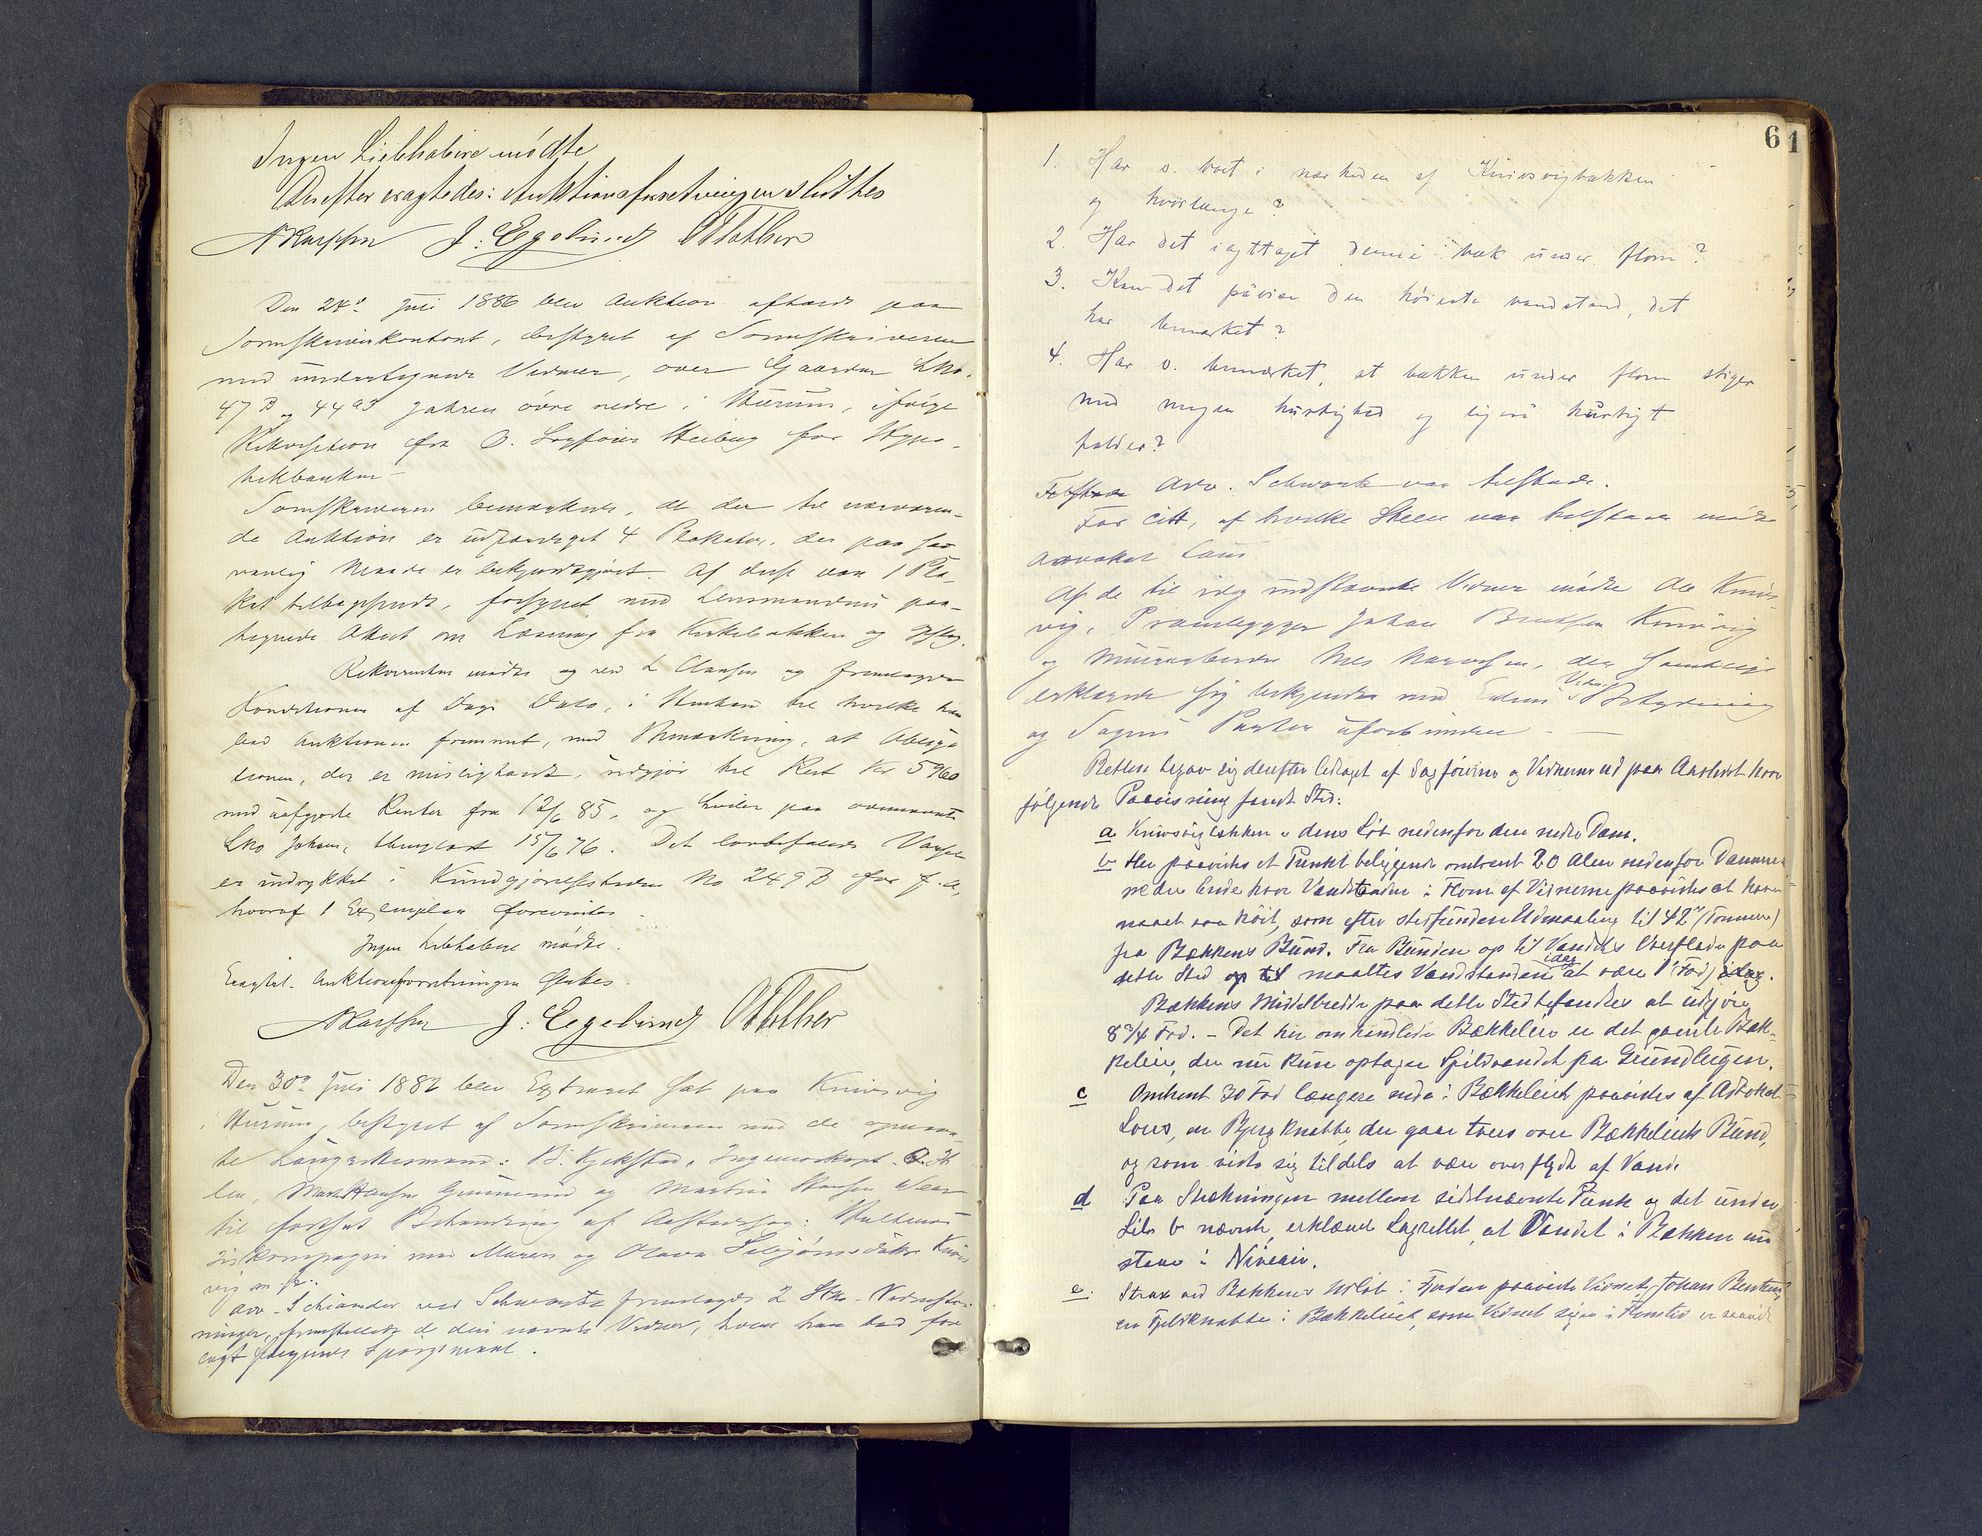 Ingen Liebhabere mødte
Derefter eragtedes: Auktionsforretningen sluttes
J. Egelund
Den 24de Juli 1886 blev Auktion afholdt paa
Sorenskriverkontoret, bestyret af Sorenskriveren
med undertegnede Vidner, over Gaarden LNo.
47 B og 44 a3 øvre nedre i Hurum, ifølge
Rekvisition fra O. Sagfører for Hypo-
thekbanken -
Sorenskriveren bemærkede, at der til nærværen-
de Auktion er udfærdiget 4 Plakater, der paa sæd
vanlig Maade er bekjendtgjort. Af disse var 1 Pla-
kat tilbagesendt, forsynet med Lensmandens paa-
tegnede Attest om Læsning fra Kirkebakken og
Rekvirenten mødte og ved L Clausen og fremlagde
Konditioner af Dags Dato, i Henhold til hvilke han
lod Auktionen fremmet, med Bemærkning, at Obliga
tionen, der er misligholdt, udgjør til Rest Kr 5960
med uafgjorte Renter fra 12/6 85, og hviler paa ovennævnte
LNo 15/6 76. Det lovbefalede Varsel
er indrykket i Kundgjørelsestidende No 249 B for f. A,
hvoraf 1 Exemplar forevistes.
Ingen Liebhabere mødte.
Eragtet. Auktionsforretningen sluttes.
J. Egelund
Den 30de Juli 1882 blev Extraret sat paa Knivsvig
i Hurum, bestyret af Sorenskriveren med de opnævn-
te Laugrettesmænd: B. Kjekstad,
len, Hansen og Martin Hansen
til fortsat Behandling af Aastedssag:
kompagni mod Maren og Olava Knivs
vig m. fl.
Adv. Schiander ved Schwartz fremlagde 2 Stkr.
ninger, fremstillede de deri nævnte Vidner, hvem han bad fore
lagt følgende Spørgsmaal.
61
1. Har v. boet i nærheden af Knivsvigbækken
og hvorlænge?
2. Har det iagttaget denne bæk under flom?
3. Kan det påvise den høieste vandstand, det
har bemærket?
4. Har v. bemærket, at bækken under flom stiger
med megen hurtighed og ligeså hurtigt
falder?
Adv. Schwartz var tilstede.
For Citt, af hvilke Skeen var tilstede mødte
advokat Lous.
Af de til idag indstævnte Vidner mødte Ole Knivs-
vig, Johan Bentsen Knivsvig
og Murarbeider Nils, der samtlige
erklærede sig bekjendte med Edens Betydning
Vidnes
og Sagens Parter uforbundne -
Retten begav sig derefter ledsaget af Sagførerne og Vidnerne ud paa Aastedet hvor
følgende Paavisning fandt Sted:
a Knivsvigbækken i dens Løb nedenfor den nedre Dam.
b Her paavistes et Punkt beliggende omtrent 20 Alen nedenfor Dammens
nedre Ende hvor Vandstanden i Flom af Vidnerne paavistes at have
naaet saa høit, som efter stedfunden Udmaaling til 42" (Tommer)
fra Bækkens Bund. Fra Bunden op til Vandets Overflade paa
dette Sted op til maaltes Vandstanden idag at være 1 Fod idag.
Bækkens Middelbredde paa dette Sted befandtes at udgjøre
8 3/4 Fod. - Det her omhandlede Bækkeleie er det gamle Bæk-
keleie, der nu kun optager Spildvandet fra Grundlugen.
c Omtrent 30 Fod længere nede i Bækkeleiet paavistes af Advokat
Lous, en Bjergknatte, der gaar tvers over Bækkeleiets Bund,
og som viste sig tildels at være overflydt af Vand.
d Paa Strækningen mellem sidstnævnte Punkt og det under
Litr b nævnte, erklærede Lagrettet, at Vandet i Bækken nu
stod i Niveau.
e. Strax ved Bækkens Udløb i Fjorden paaviste Vidnet Johan Bentsen
en Fjeldknatte i Bækkeleiet, som Vidnet siger i Flomtid er